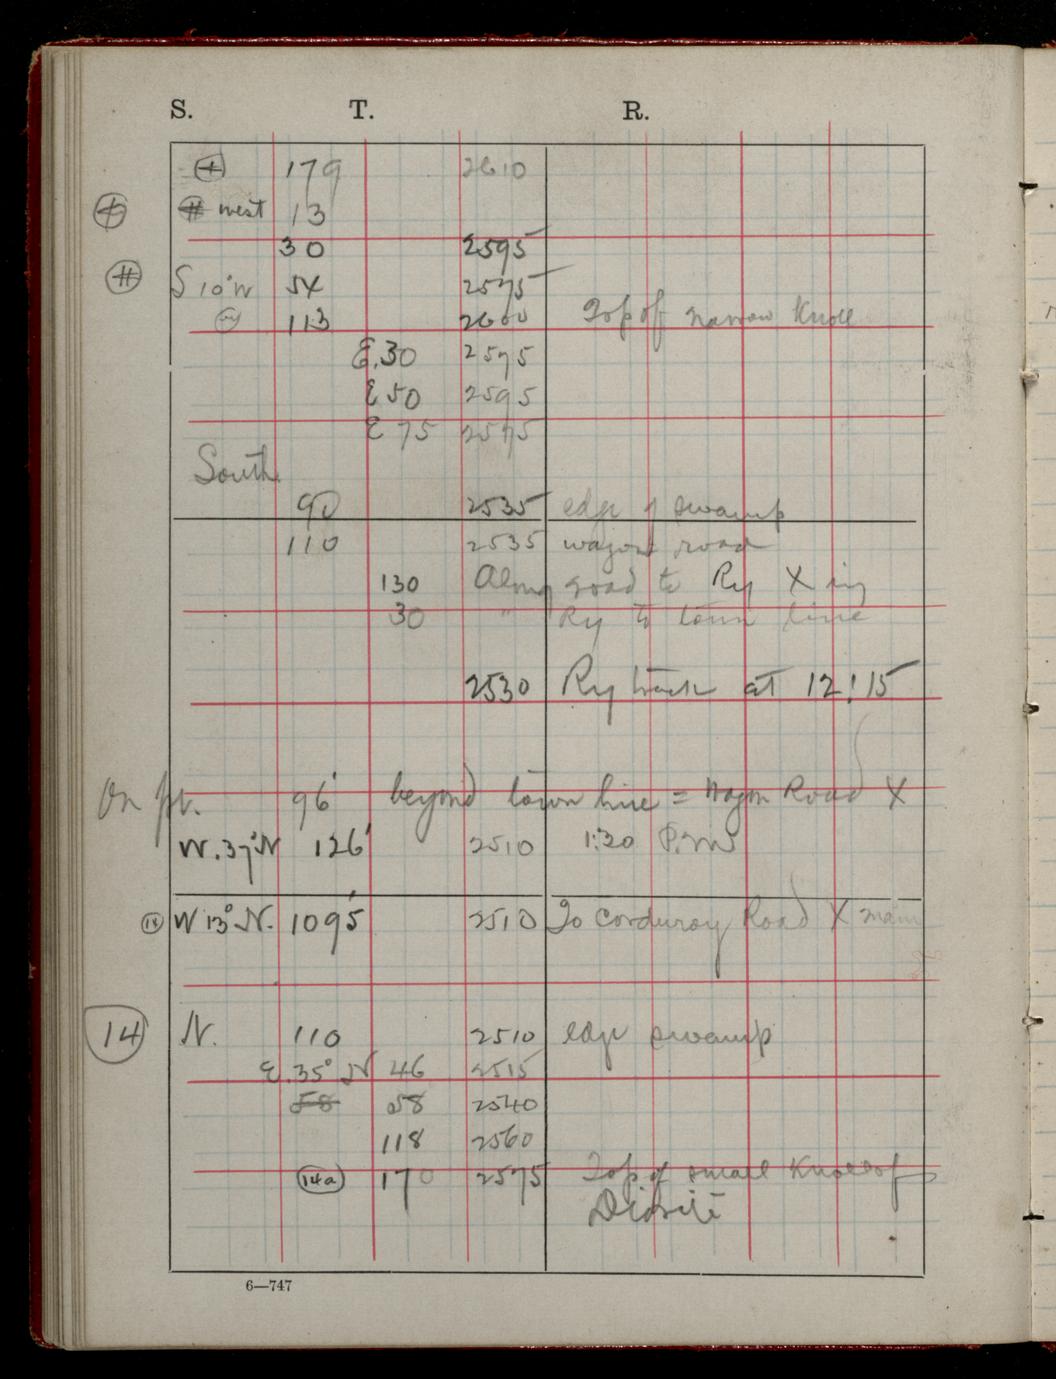 S. T. R.
+ 179 2610
+ # west 13
30 2595
# S 10° W 54 2575
113 2600 Top of narrow Knoll
E. 30 2575
E 50 2595
E 75 2575
South
90 2535 edge of swamp
110 2535 wagon road
130 Along road to Ry X ing
30 " Ry to town line
2530 Ry track at 12:15
On 96' beyond town line = Wagon Road X
W. 37° N 126' 2510 1:30 P.M
14 W 13° N. 1095' 2510 To Corduroy Road X main
14 N. 110 2510 edge swamp
E. 35° N 46 2515
58 58 2540
118 2560
14a 170 2575 Top of small Knoll of
Diorite
6—747